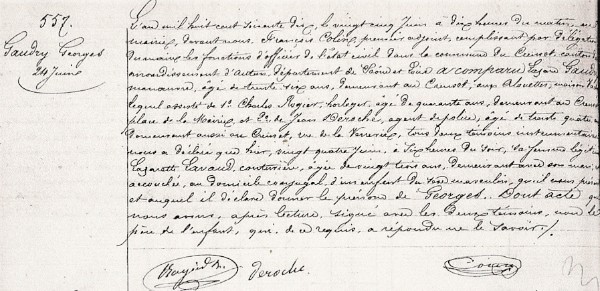 557.
Gaudry Georges
24 Juin
L'an mil huit cent soixante dix, le vingt cinq Juin à dix heures du matin, en
mairie, devant nous, François Colin, premier adjoint, remplissant par délégation
du maire les fonctions d'officier de l'état civil dans la commune du Creusot, canton
arrondissement d'Autun, département de Saône et Loire a comparu Lazare Gaudry
manœuvre, âgé de trente six ans, demeurant au Creusot, aux Alouettes, maison
lequel assisté de 1° Charles Rogier, horloger, âgé de quarante ans, demeurant au Creusot
place de la Mairie et 2° de Jean Deroche, agent de police, âgé de trente quatre
demeurant aussi au Creusot, rue de la Verrerie, tous deux témoins instrumentaires
nous a déclaré que hier, vingt quatre Juin, à six heures du soir, sa femme légitime
Lazarette Lavaud, couturière, âgée de vingt trois ans, demeurant avec son mari,
accouchée, au domicile conjugal, d'un enfant du sexe masculin, qu'il nous présente
et auquel il déclare donner le prénom de Georges. Dont acte que
nous avons, après lecture, signé avec les deux témoins, non le
père de l'enfant, qui, de ce requis, a répondu ne le savoir./.
Deroche.